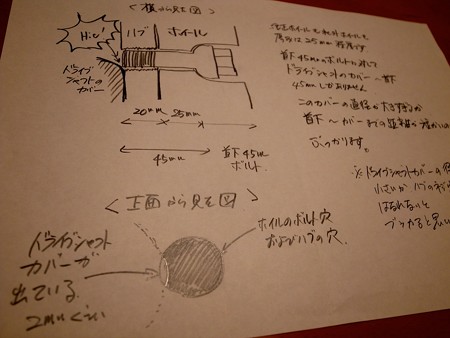 <横から見た図>
Hit!
ハブ
ホイール
ドライブ
シャフトの
カバー
20mm 25mm
45mm
首下45mm
ボルト.
純正ホイールも社外ホイールも
厚みは25mm程度です
首下45mmのボルトに対して
ドライブシャフトのカバー〜首下
45mmしかありません
このカバーの直径が大きすぎるか
首下〜カバーまでの距離が
ぶつかります。
※ドライブシャフトカバーの
小さいか ハブの
はなれないと
ブツかると思い
<正面から見た図>
ドライブシャフト
カバーが
出ている.
2mmくらい
ホイルのボルト穴
およびハブの穴.